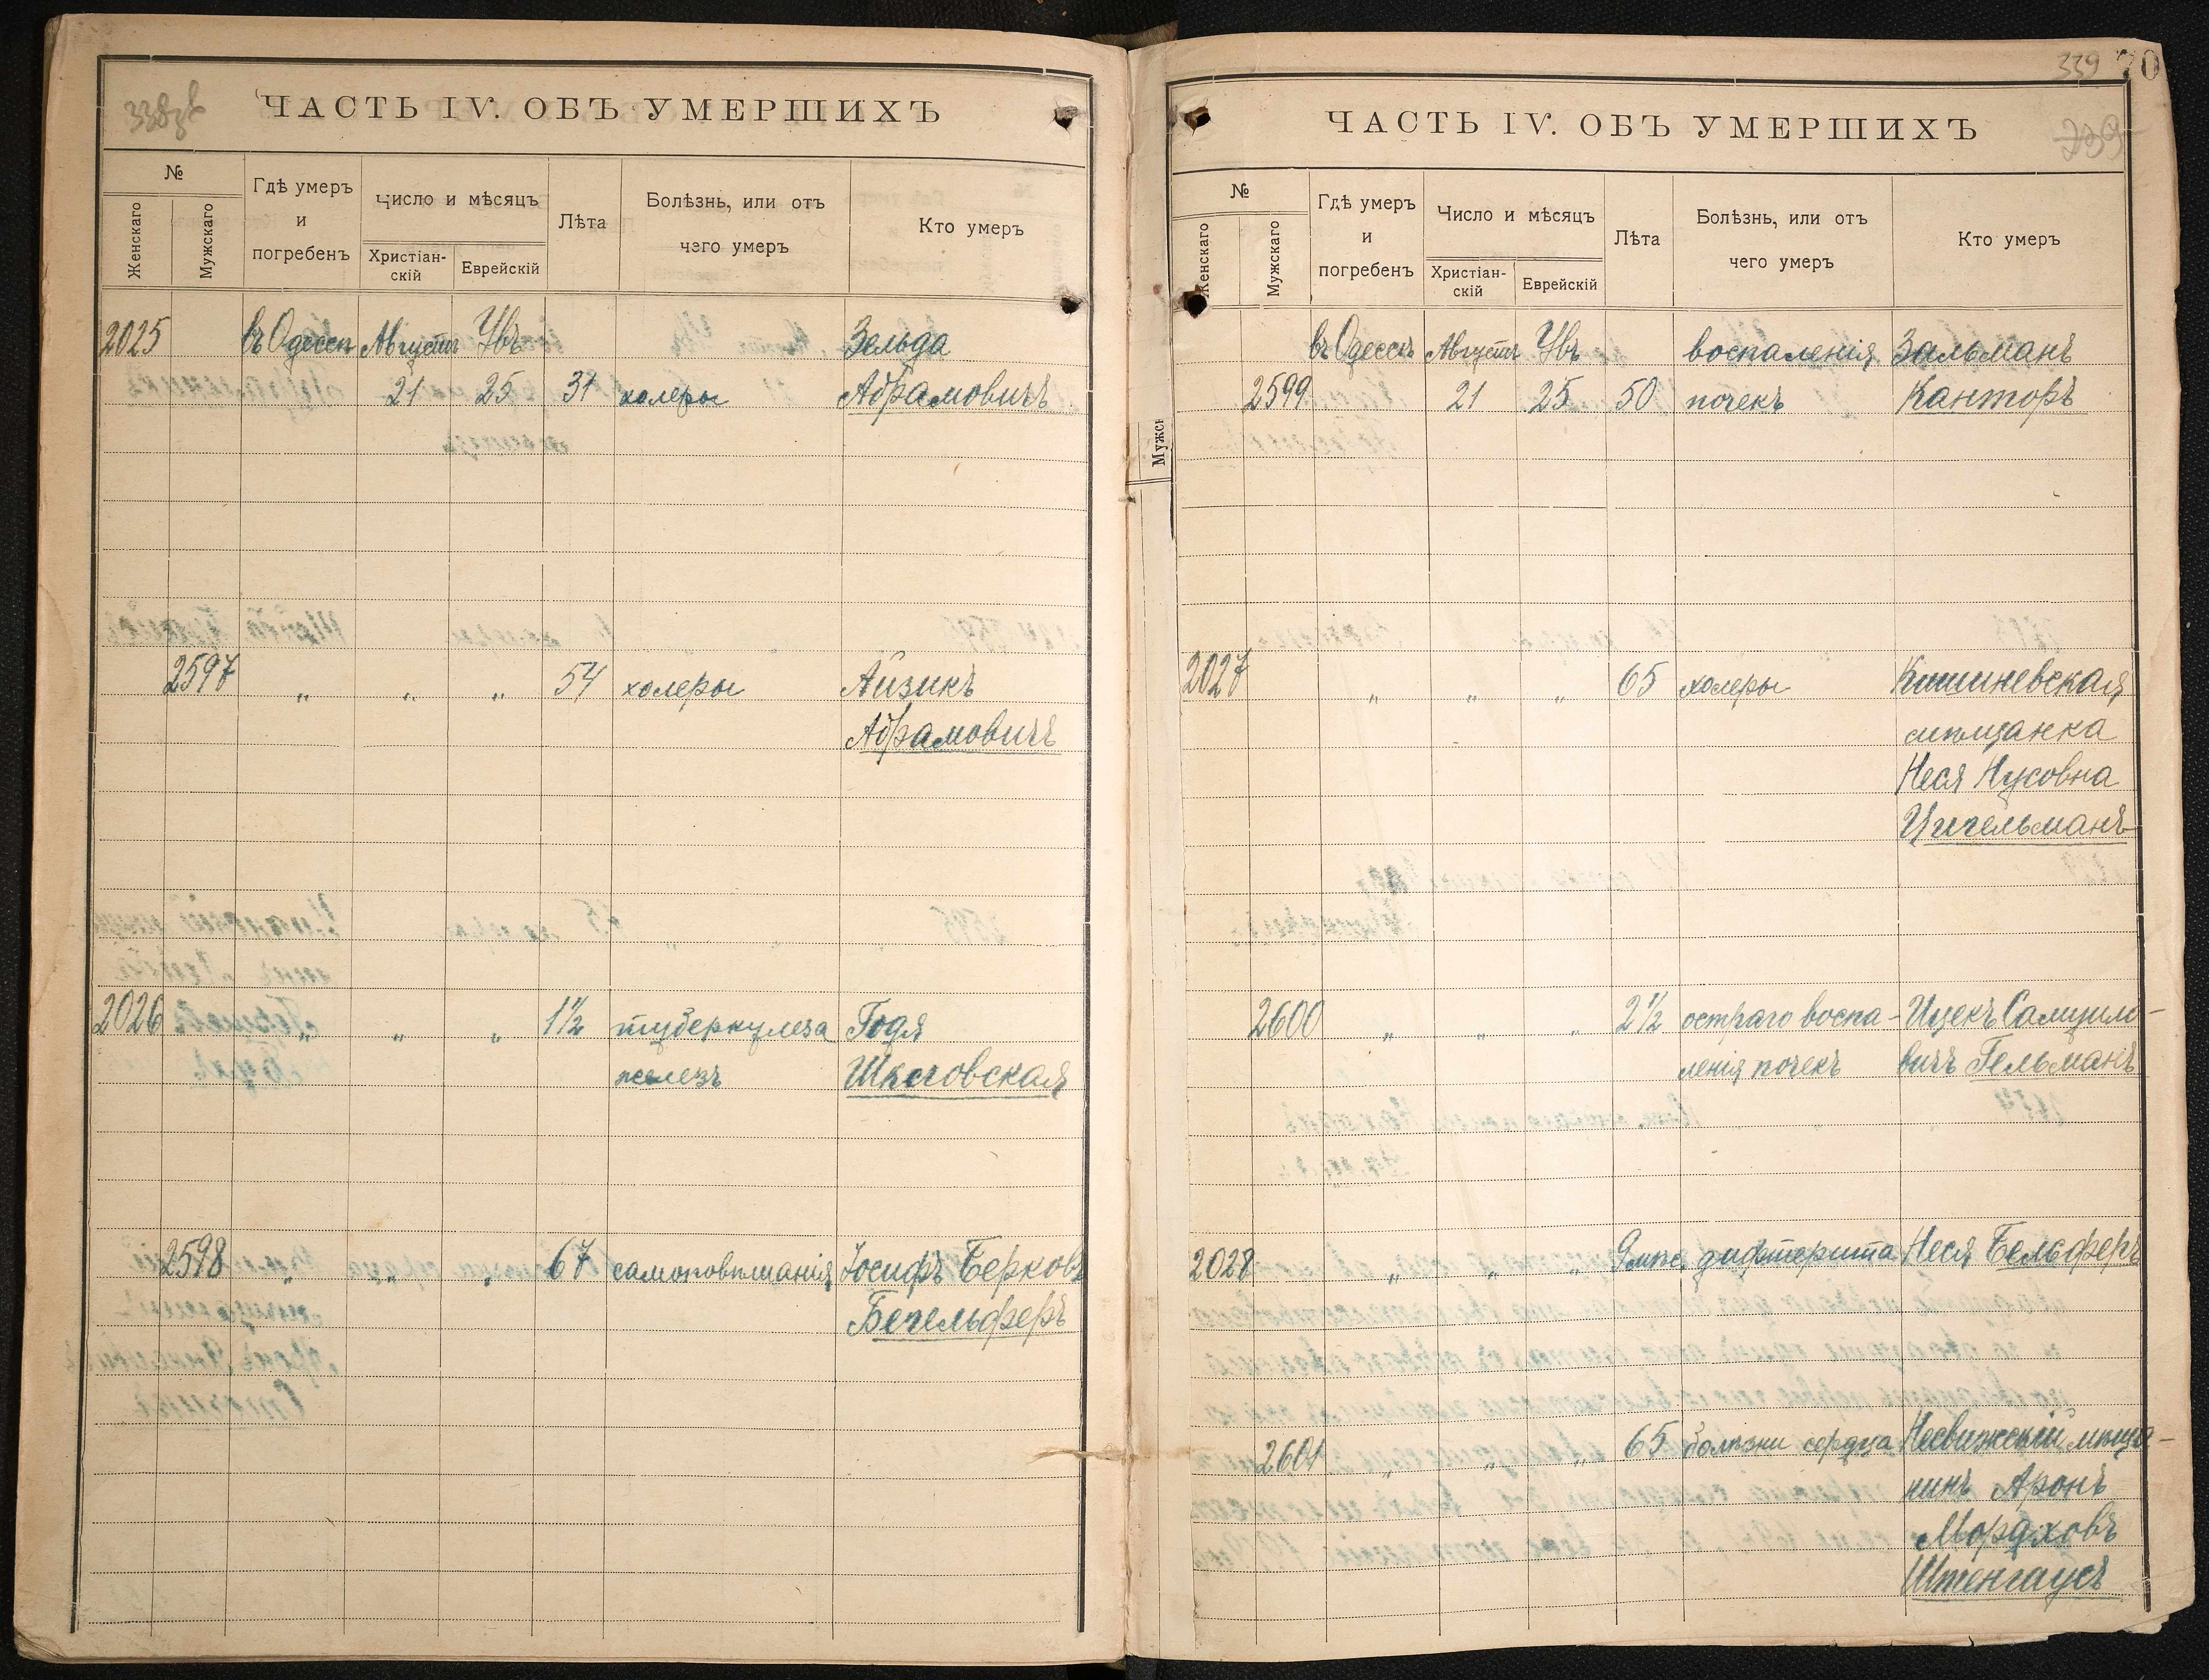 ЧАСТЬ IV. ОБЪ УМЕРШИХЪ
№
Женскаго
Мужскаго
Гдѣ умеръ
и
погребенъ
Число и мѣсяцъ
Христіан-
скій
Еврейскій
Лѣта
Болѣзнь, или отъ
чего умеръ
Кто умеръ
2025 въ Одессѣ Августъ Увъ Зельда
21 25 31 холеры Абрамовичъ
2597 „ „ „ 54 холеры Айзикъ
Абрамовичъ
2026 „ „ „ 1½ туберкулеза Годя
железъ Шкловская
2598 „ „ „ 67 самоповѣшанія Іосифъ Берковъ
Бегельферъ
339 70
ЧАСТЬ IV. ОБЪ УМЕРШИХЪ
339
№
Женскаго
Мужскаго
Гдѣ умеръ
и
погребенъ
Число и мѣсяцъ
Христіан-
скій
Еврейскій
Лѣта
Болѣзнь, или отъ
чего умеръ
Кто умеръ
въ Одессѣ Августъ Увъ воспаленія Зальманъ
2599 21 25 50 почекъ Канторъ
2027 „ „ „ 65 холеры Кишиневская
мѣщанка
Неся Нусовна
Цигельманъ
2600 „ „ „ 2½ остраго воспа- Ицекъ Самуило-
ленія почекъ вичъ Гельманъ
2028 „ „ „ 9 мѣс. дифтерита Неся Бельферъ
2601 „ „ „ 65 болѣзни сердца Несвижскій мѣща-
нинъ Аронъ
Мордховъ
Штенгаусъ